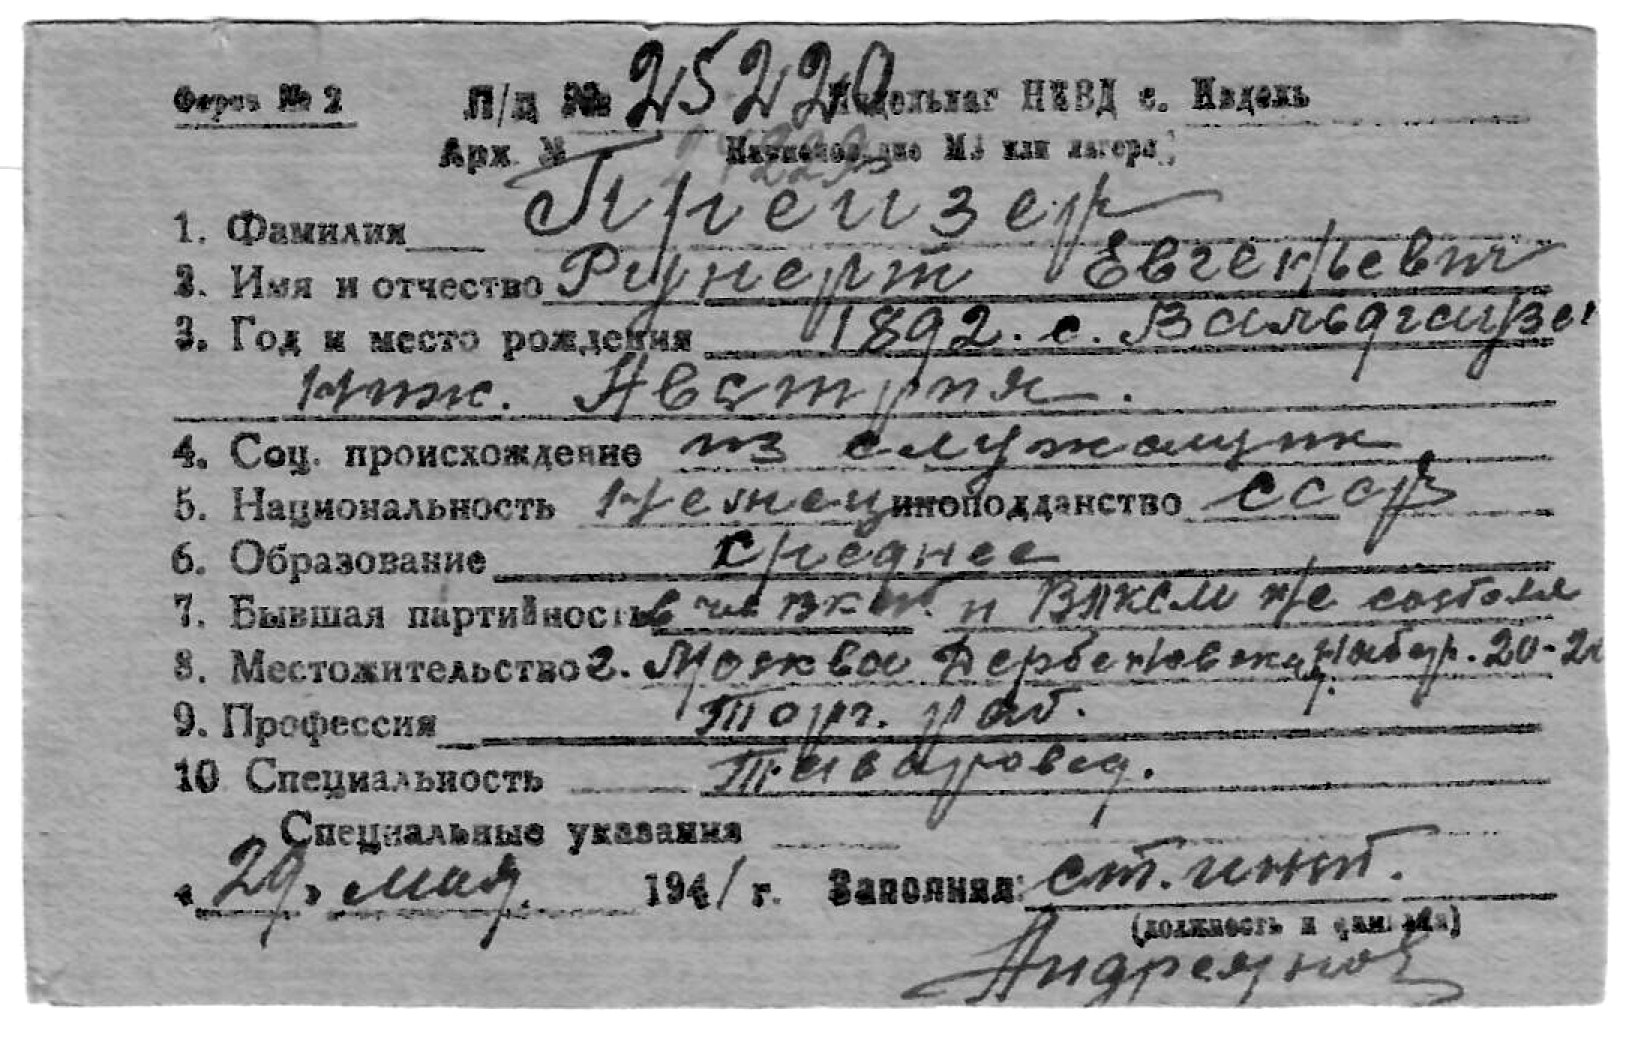 Форма № 2 Л/д № 25220 Ивдельлаг НКВД с. Ивдель
Арх. № Наименование МЗ или лагеря
1. Фамилия Прейзер
2. Имя и отчество Руперт Евгеньевич
3. Год и место рождения 1892. с. Вальдгаузен
Ниж. Австрия.
4. Соц. происхождение из служащих
5. Национальность Немец иноподданство СССР
6. Образование среднее
7. Бывшая партийность в чл ВКПб. и ВЛКСМ н/е состоял
8. Местожительство г. Москва Дербеневская набер. 20-
9. Профессия Торг. раб.
10 Специальность Товаровед.
Специальные указания
«29» мая 1941 г. Заполнял: ст. инсп.
(должность и фамилия)
Андреянов